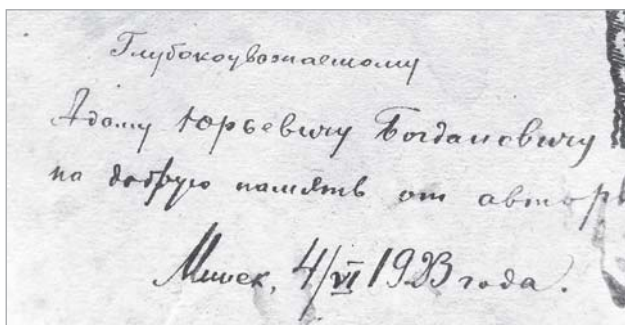 Глубокоуважаемому
Адаму Юрьевичу Богдановичу
на добрую память от автора
Минск, 4/VI 1923 года.